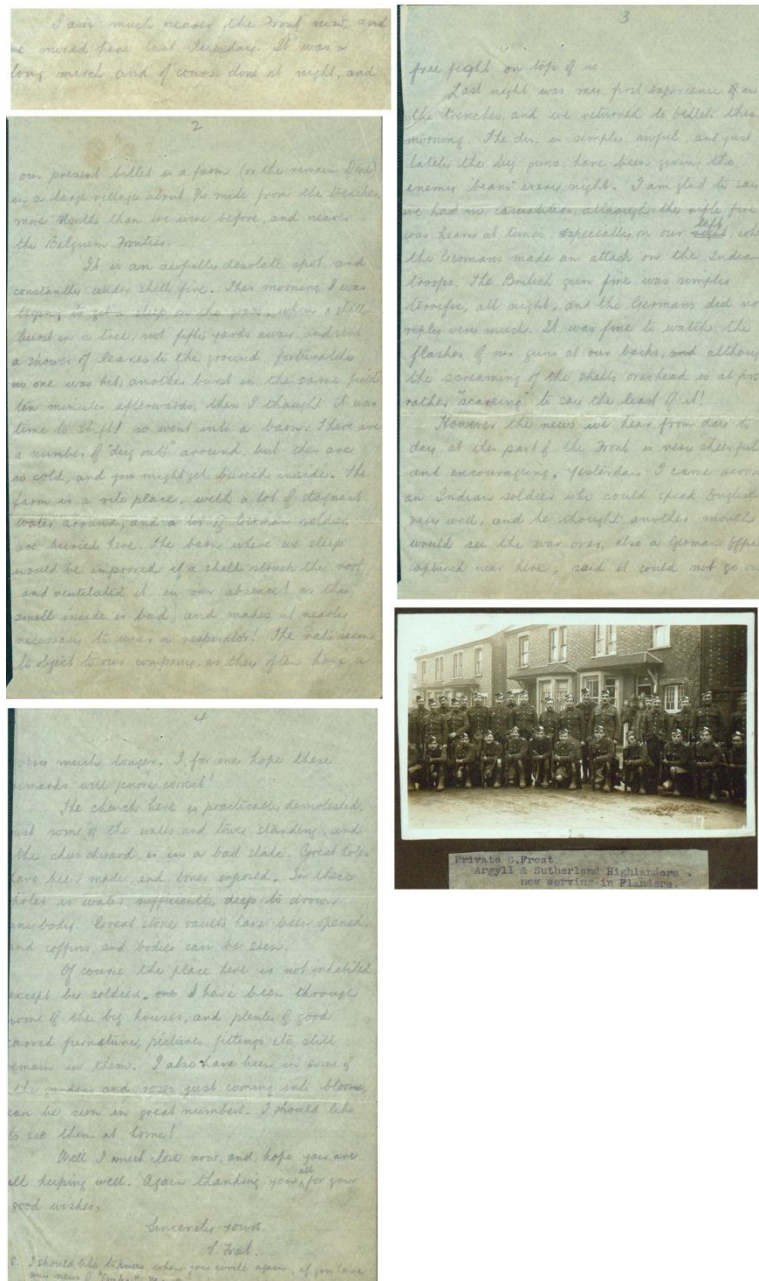 I am much nearer the Front now, and
we moved here last Tuesday. It was a
long march and of course done at night, and
2
our present billet is a farm (or the remains of one)
in a large village about ½ mile from the trenches,
more North than we were before, and near
the Belgium Frontier.
It is an awfully desolate spot and
constantly under shell fire. This morning I was
trying to get a sleep on the grass, when a shell
burst in a tree, not fifty yards away, and sent
a shower of leaves to the ground, fortunately
no one was hit, another burst in the same field
ten minutes afterwards, then I thought it was
time to shift! so went into a barn. There are
a number of "dug outs" around, but they are
so cold, and you might get buried inside. The
farm is a vile place, with a lot of stagnant
water around, and a lot of German soldiers
are buried here. The barn where we sleep
would be improved if a shell struck the roof
and ventilated it in our absence! as the
smell inside is bad, and makes it nearly
necessary to wear a respirator! The rats seem
to object to our company, as they often have a
3
free fight on top of us
Last night was my first experience of
the trenches, and we returned to billets this
morning. The din is simply awful, and just
lately the big guns, have been giving the
enemy "beans" every night. I am glad to say
we had no casualties, although the rifle fire
was heavy at times, especially on our left
the Germans made an attack on the Indian
troops. The British gun fire was simply
terrific, all night, and the Germans did not
reply very much. It was fine to watch the
flashes of our guns at our backs, and although
the screaming of the shells overhead is at first
rather "scareing" to say the least of it!
However the news we hear from day to
day at this part of the Front is very cheerful
and encouraging. Yesterday I came across
an Indian soldier who could speak English
very well, and he thought another month
would see the war over, also a German officer
captured near here, said it could not go on
4
very much longer. I for one hope these
remarks will prove correct!
The church here is practically demolished,
just some of the walls and tower standing, and
the churchyard is in a bad state. Great holes
have been made, and bones exposed. In these
holes is water, sufficiently deep to drown
anybody. Great stone vaults have been opened,
and coffins and bodies can be seen.
Of course the place here is not inhabited
except by soldiers. I have been through
some of the big houses, and plenty of good
carved furniture, pictures, fittings etc still
remain in them. I also have been in some of
the gardens and roses just coming into bloom,
can be seen in great numbers. I should like
to see them at home!
Well I must close now, and hope you are
all keeping well. Again thanking you all for your
good wishes.
Sincerely yours
S. Frost.
S. I should like to know when you write again, if you have
any news of
Private S.Frost
Argyll & Sutherland Highlanders.
now serving in Flanders.